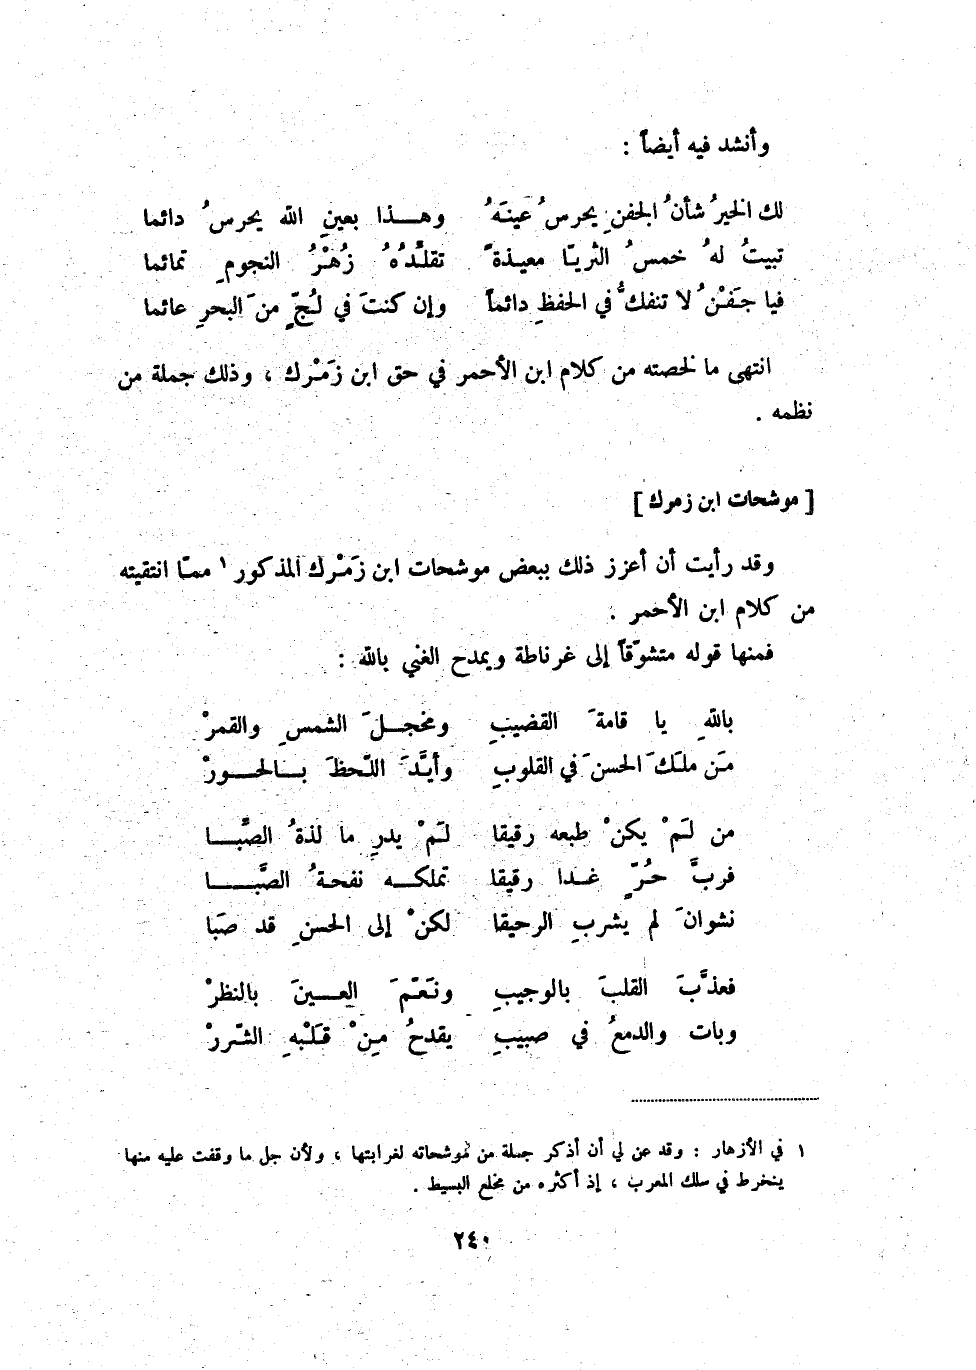 وأنشد فيه أيضاً :
لك الخيرُ شأنُ الجفنِ يحرسُ عينَهُ وهــذا بعينِ الله يحرسُ دائما
تبيتُ لهُ خمسُ الثريّا معيذةً تقلَّدُهُ زُهْرُ النجومِ تمائما
فيا جَفْنُ لا تنفكُّ في الحفظِ دائماً وإن كنتَ في لُجٍّ منَ البحرِ عائما
انتهى ما لخصته من كلام ابن الأحمر في حق ابن زَمْرك ، وذلك جملة من
نظمه .
[ موشحات ابن زمرك ]
وقد رأيت أن أعزز ذلك ببعض موشحات ابن زَمْرك المذكور ١ ممّا انتقيته
من كلام ابن الأحمر .
فمنها قوله متشوّقاً إلى غرناطة ويمدح الغني بالله :
باللهِ يا قامةَ القضيبِ ومخجــلَ الشمسِ والقمرْ
مَن ملَكَ الحسنَ في القلوبِ وأيَّدَ اللّحظَ بــالحــورْ
من لَمْ يكنْ طبعه رقيقا لَمْ يدرِ ما لذةُ الصَّبــا
فربَّ حُرٍّ غــدا رقيقا تملكــه نفحةُ الصَّبــا
نشوانَ لم يشربِ الرحيقا لكنْ إلى الحسنِ قد صَبا
فعذَّبَ القلبَ بالوجيبِ ونَعّمَ العــينَ بالنظرْ
وبات والدمعُ في صبيبِ يقدحُ مِنْ قَلْبهِ الشّررْ
١ في الأزهار : وقد عن لي أن أذكر جملة من موشحاته لغرابتها ، ولأن جل ما وقفت عليه منها
ينخرط في سلك المعرب ، إذ أكثره من مخلع البسيط .
٢٤٠